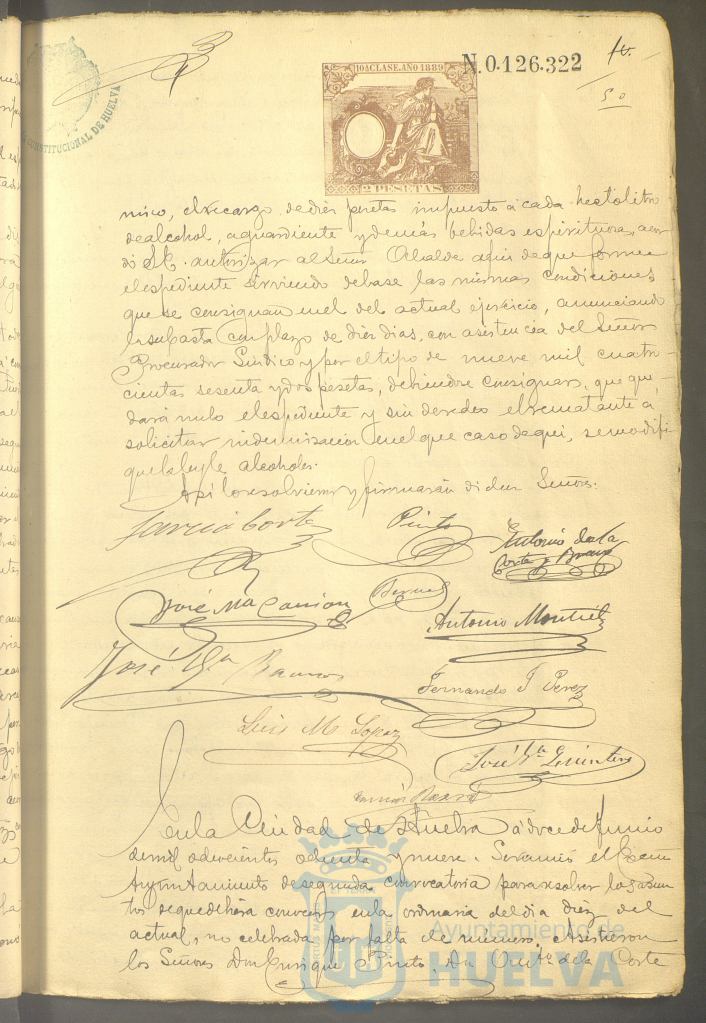 CONSTITUCIONAL DE HUELVA
10A CLASE. AÑO 1889
N.0.126.322
50
2 PESETAS
nico, el recargo de diez pesetas impuesto á cada hectolitro
de alcohol, aguardiente y demás bebidas espirituosas, acor
dó S.E. autorizar al Señor Alcalde afin de que forme
el espediente sirviendo de base las mismas condiciones
que se consignan en el del actual ejercicio, anunciando
la subasta con plazo de diez dias, con asistencia del Señor
Procurador Síndico y por el tipo de nueve mil cuatro-
cientas sesenta y dos pesetas, debiendose consignar, que que-
dará nulo el espediente y sin derecho el rematante á
solicitar indemnización en el que caso de qe, se modifi
que la ley de alcoholes.
Así lo resolvieron y firmarán dichos Señores:
Garcia Corte
Pinto
Antonio de la
Corte y Bravo
José Ma Carrion
Bernal
Antonio Montiel
José Ma Barros
Fernando J Perez
Luis M Lopez
José Ma Quintero
En la Ciudad de Huelva á doce de Junio
de mil ochocientos ochenta y nueve. Se reunió el Excmo
Ayuntamiento de segunda convocatoria para resolver los asun
tos de que debiera conocer en la ordinaria del dia diez del
actual, no celebrada por falta de número. Asistieron
los Señores Don Enrique Pinto, Dn Anto de la Corte
Ayuntamiento de
HUELVA